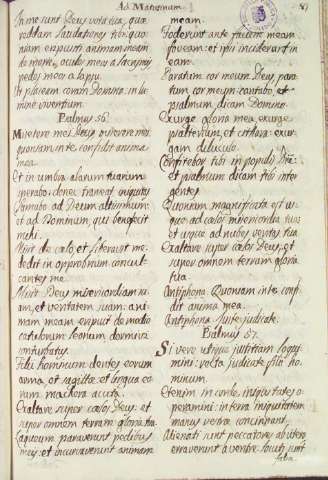 Ad Matutinum.
In me sunt Deus vota tua, quæ
reddam laudationes tibi: quo
niam eripuisti animam meam
de morte, oculos meos a lacrymis
pedes meos a lapsu.
Ut placeam coram Domino: in lu
mine viventium.
Psalmus 56.
Miserere mei Deus, miserere mei:
quoniam in te confidit anima
mea.
Et in umbra alarum tuarum
sperabo: donec transeat iniquitas
Clamabo ad Deum altissimum:
et ad Dominum, qui benefecit
mihi.
Misit de cælo, et liberavit me:
dedit in opprobrium concul-
cantes me.
Misit Deus misericordiam su
am, et veritatem suam: ani
mam meam eripuit de medio
catulorum leonum dormivi
conturbatus.
Filii hominum dentes eorum
arma, et sagittæ: et lingua eo
rum machera acuta.
Exaltare super cælos Deus: et
super omnem terram gloria tua.
Laqueum paraverunt pedibus
meis: et incurvaverunt animam
meam.
Foderunt ante faciem meam
foveam: et ipsi inciderunt in
eam.
Paratum cor meum Deus, para
tum cor meum: cantabo, et
psalmum dicam Domino.
Exurge gloria mea, exurge
psalterium, et cithara: exur-
gam diluculo.
Confitebor tibi in populis Dñe:
et psalmum dicam tibi inter
gentes.
Quoniam magnificata est us
que ad cælos misericordia tua:
et usque ad nubes veritas tua.
Exaltare super cælos Deus, et
super omnem terram gloria
tua.
Antiphona Quoniam in te confi-
dit anima mea.
Antiphona Juste judicate.
Psalmus 57.
Si vere utique justitiam loqui
mini: recta judicate filii ho
minum.
Etenim in corde iniquitates o-
peramini: in terra iniquitatem
manus vestræ concinnant.
Alienati sunt peccatores a vulva
erraverunt ab utero: locuti sunt
falsa.